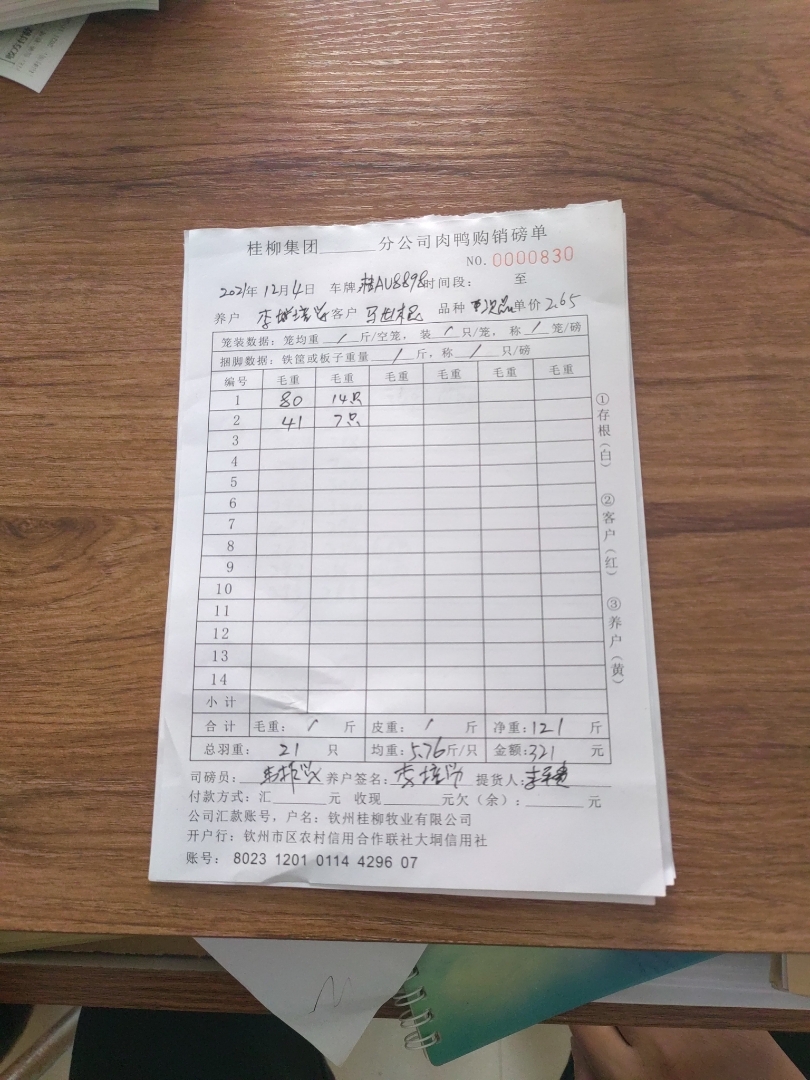 桂柳集团______分公司肉鸭购销磅单
NO. 0000830
2021年12月4日 车牌:桂AU8898时间段: 至
养户 客户 品种 单价 2.65
笼装数据: 笼均重 / 斤/空笼, 装 / 只/笼, 称 / 笼/磅
捆脚数据: 铁筐或板子重量 / 斤, 称 / 只/磅
编号 毛重 毛重 毛重 毛重 毛重 毛重
1 80 14只
2 41 7只
3
4
5
6
7
8
9
10
11
12
13
14
小计
合计 毛重: / 斤 皮重: / 斤 净重:121 斤
总羽重: 21 只 均重:5.76斤/只 金额:321 元
司磅员: 养户签名: 提货人:
付款方式: 汇______元 收现______元欠(余):______元
公司汇款账号, 户名: 钦州桂柳牧业有限公司
开户行: 钦州市区农村信用合作联社大垌信用社
账号: 8023 1201 0114 4296 07
①存根(白)
②客户(红)
③养户(黄)